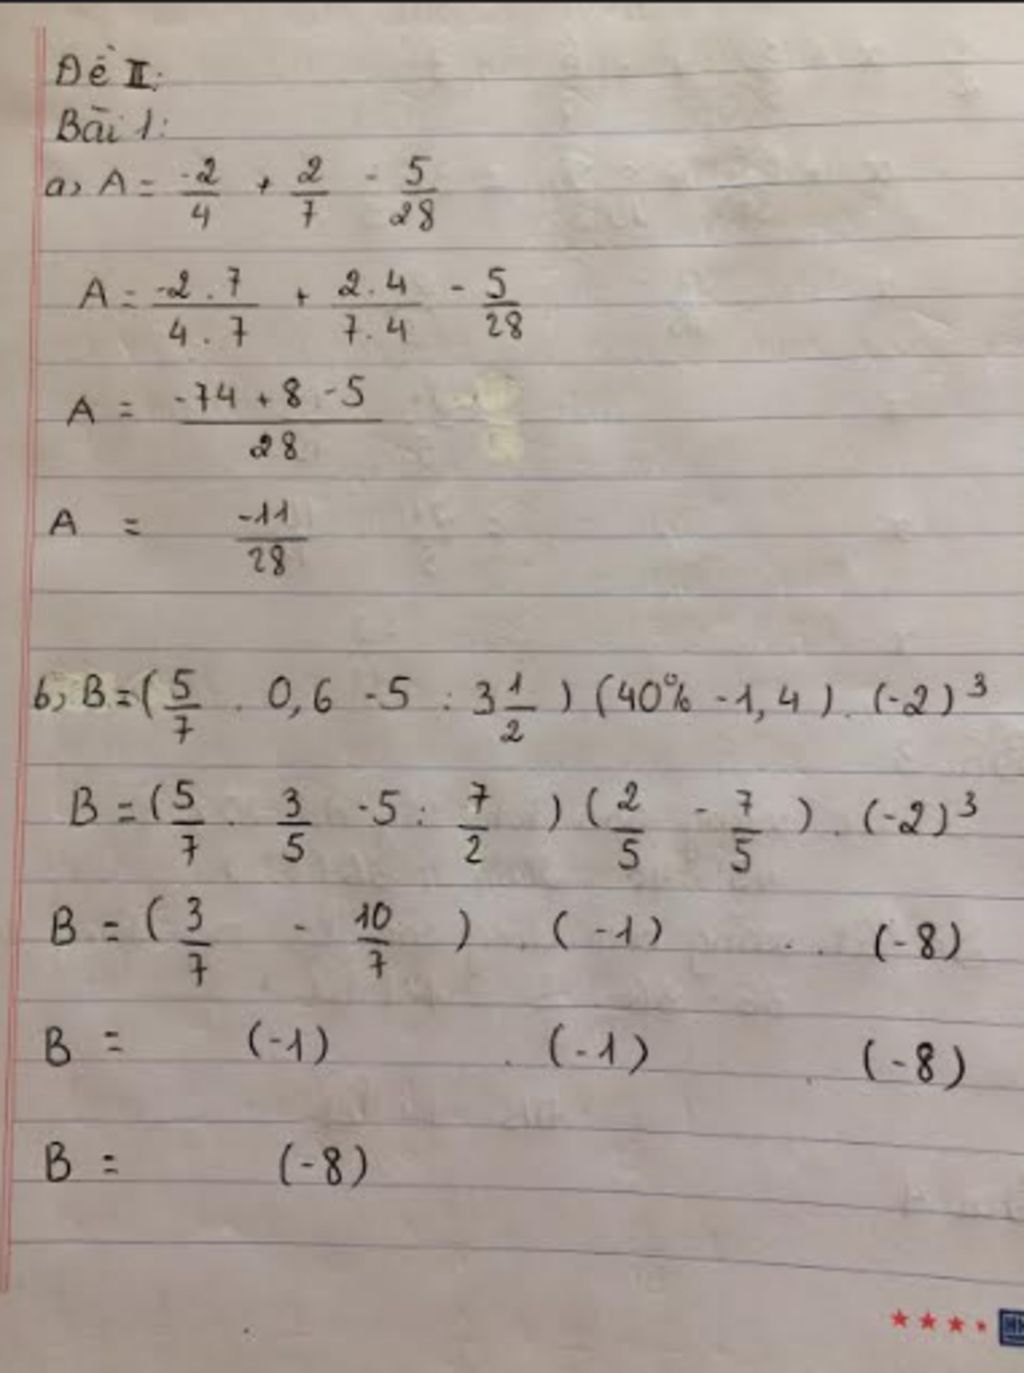 Đề II:
Bài 1:
a, A = -2/4 + 2/7 - 5/28
A = -2.7/4.7 + 2.4/7.4 - 5/28
A = -14+8-5/28
A = -11/28
b, B = (5/7 . 0,6 - 5 : 3 1/2) (40% - 1,4) . (-2)³
B = (5/7 . 3/5 - 5 : 7/2) (2/5 - 7/5) . (-2)³
B = (3/7 - 10/7) . (-1) . . (-8)
B = (-1) . (-1) . (-8)
B = (-8)